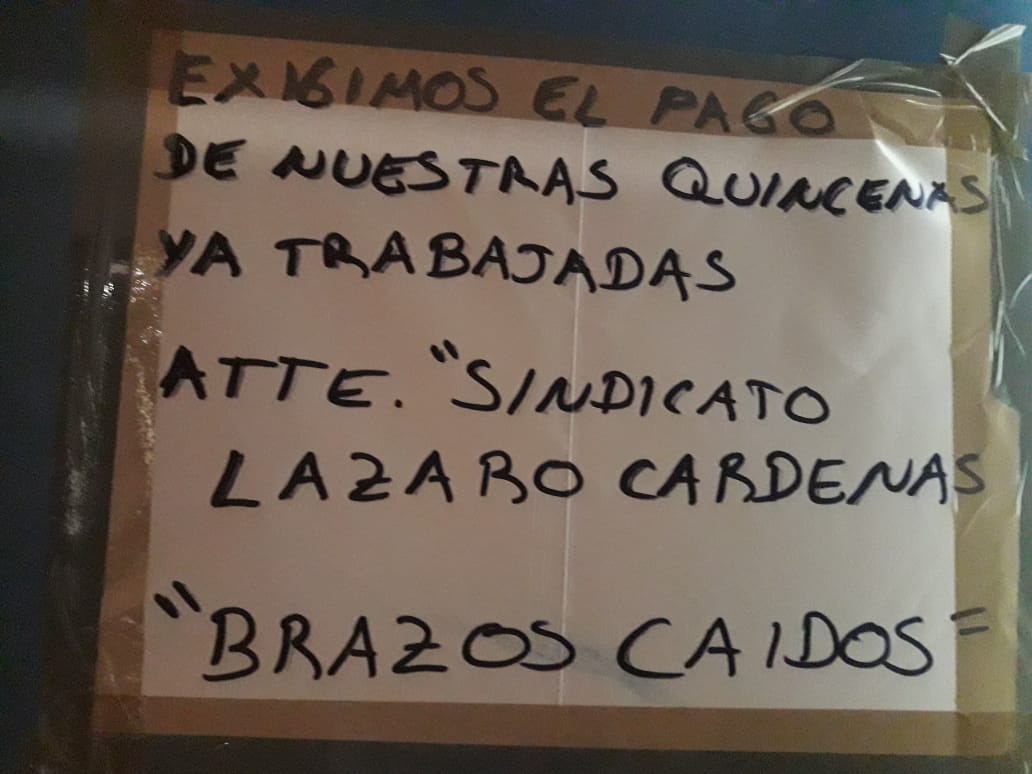 EXIGIMOS EL PAGO
DE NUESTRAS QUINCENAS
YA TRABAJADAS
ATTE. "SINDICATO
LAZARO CARDENAS
"BRAZOS CAIDOS"